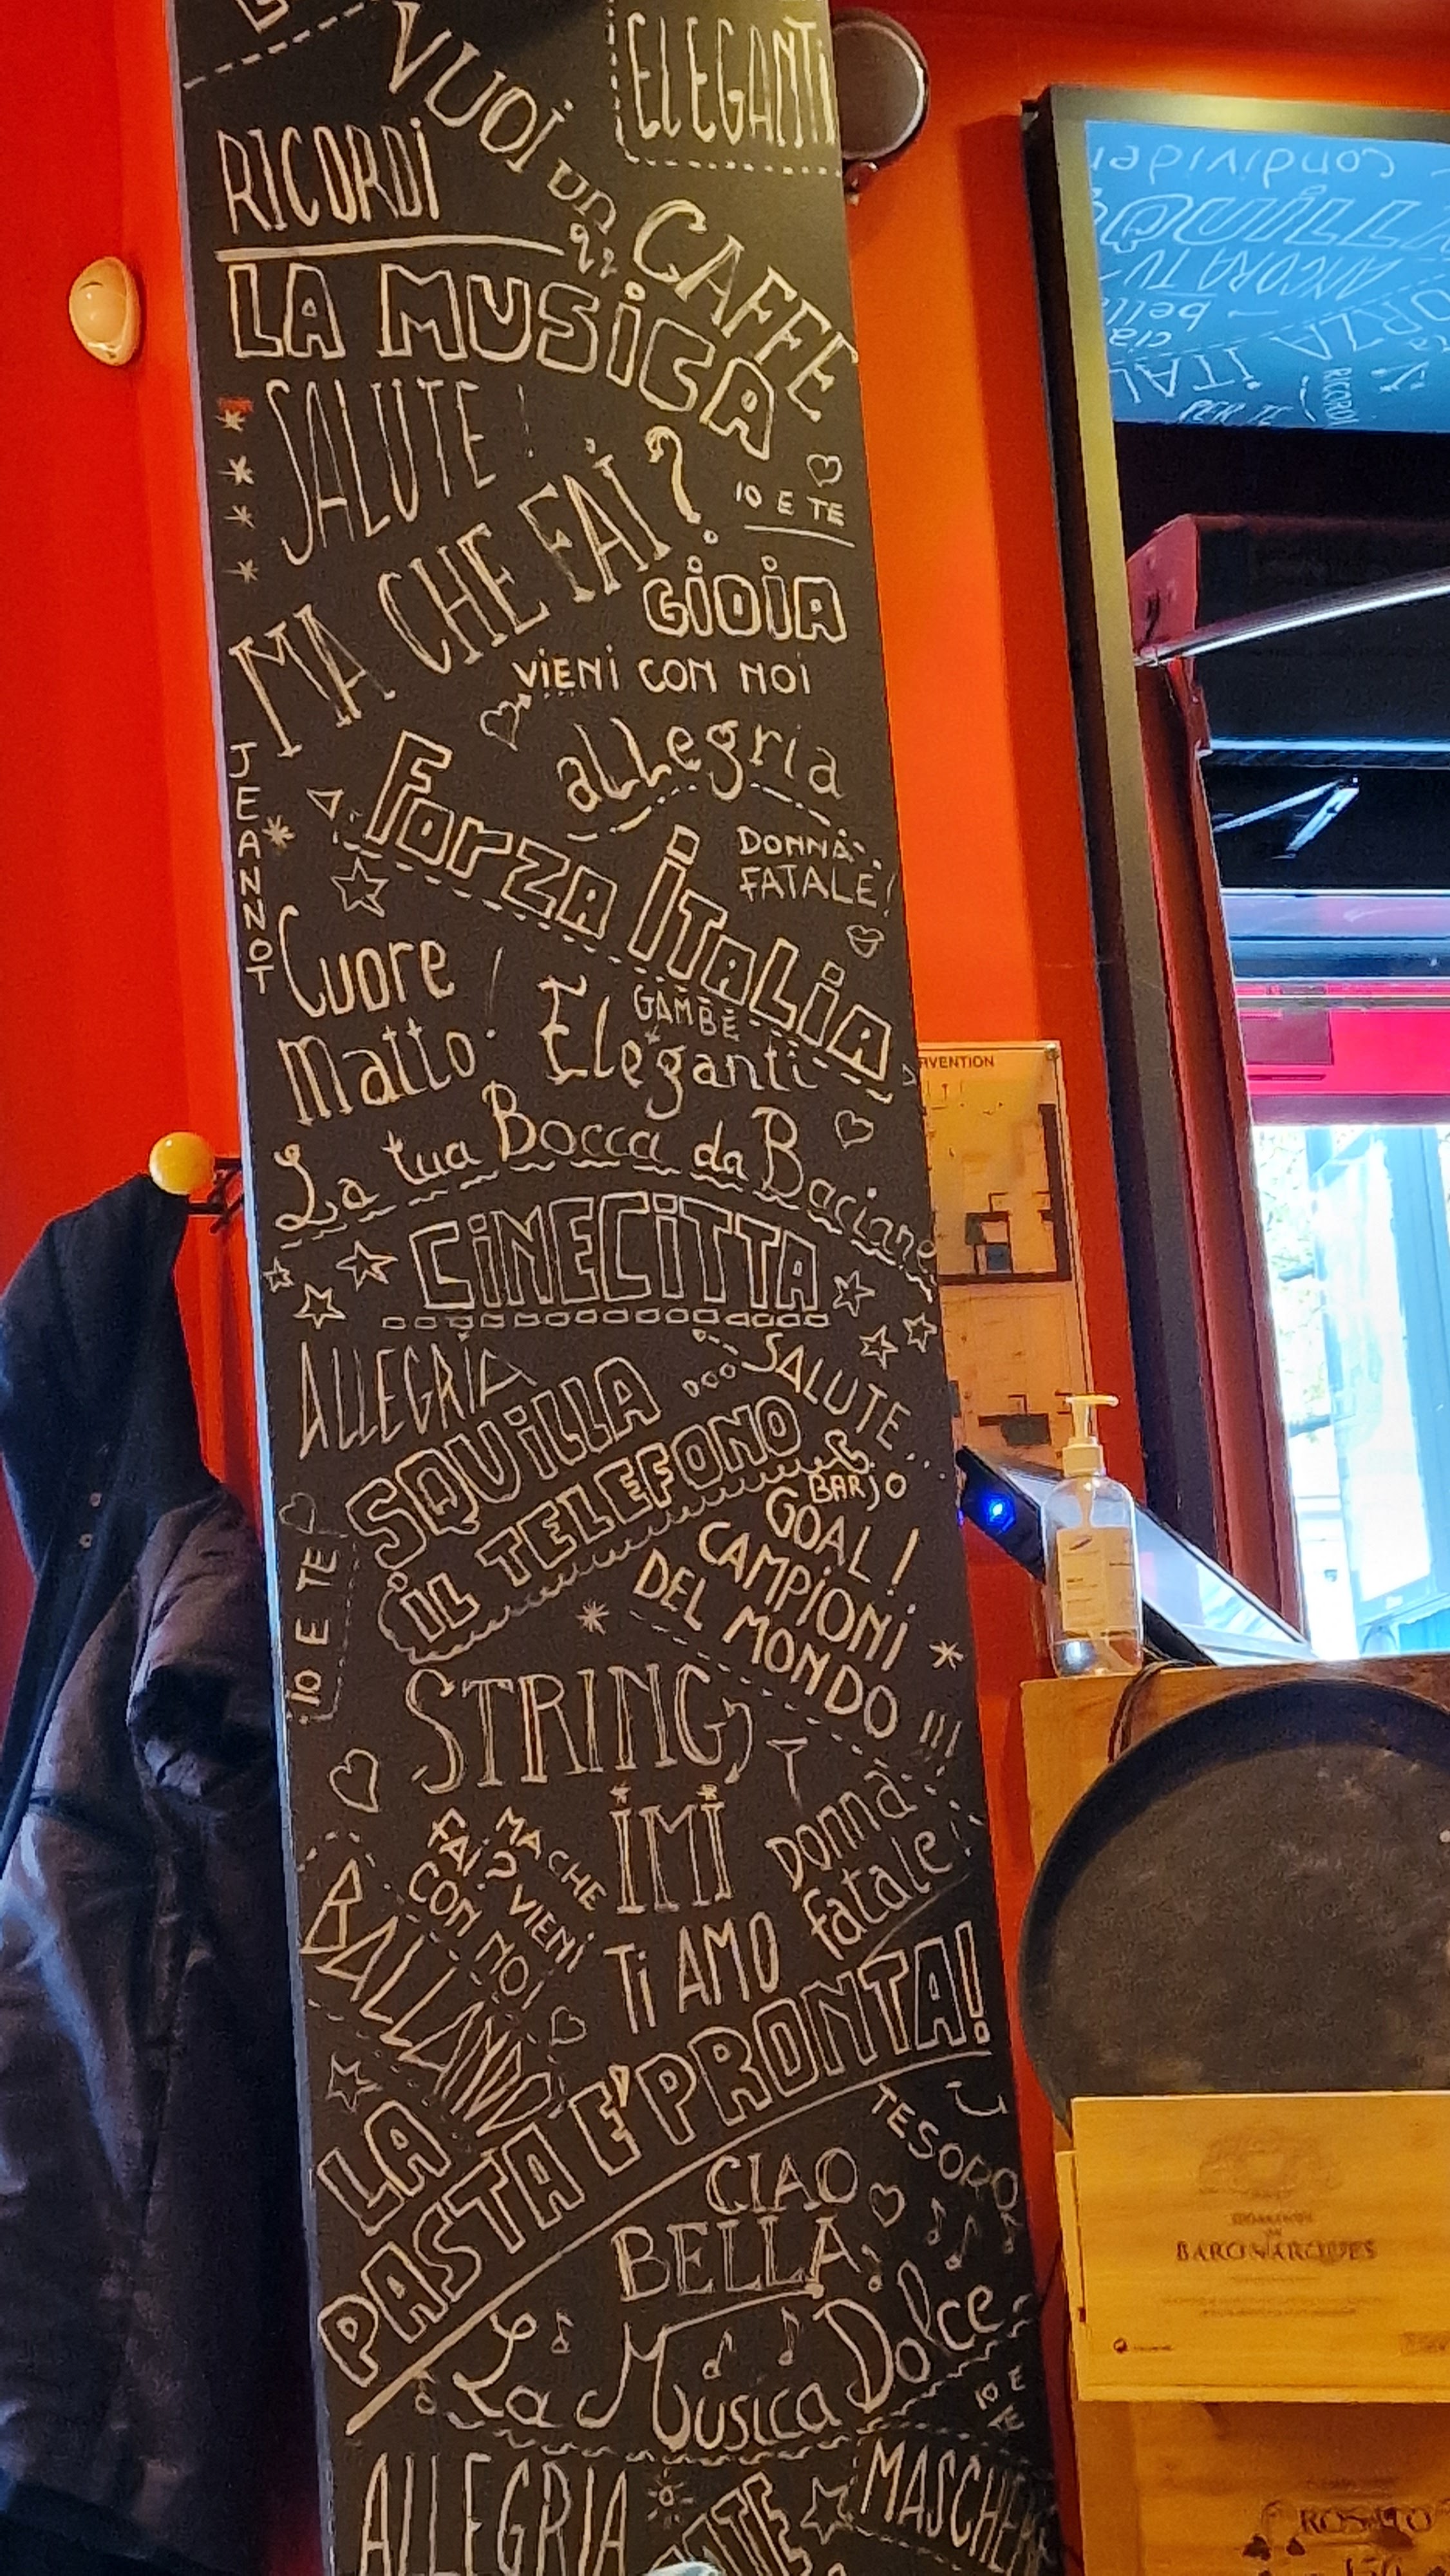 VUOI un CAFFE
ELEGANTI
RICORDI
LA MUSICA
SALUTE !
MA CHE FAI ?
IO E TE
GIOIA
VIENI CON NOI
allegria
JEANNOT
Forza ITALIA
DONNA
FATALE!
Cuore
Matto !
GAMBE
Eleganti
La tua Bocca da Baciare
CINECITTA
ALLEGRIA
SALUTE
SQUILLA
IL TELEFONO
BARJO
GOAL !
CAMPIONI
DEL MONDO !!!
IO E TE
STRING
IMI
MA CHE
FAI? VIENI
CON NOI
Donna
fatale!
BALLANO
TI AMO
LA
PASTA E' PRONTA!
TESORO
CIAO
BELLA
La Musica Dolce
IO E
TE
ALLEGRIA
condivider
ANCORA TU
bella
ciao
FORZA ITAL
PER TE
RICORDI
RVENTION
BARONARQUES